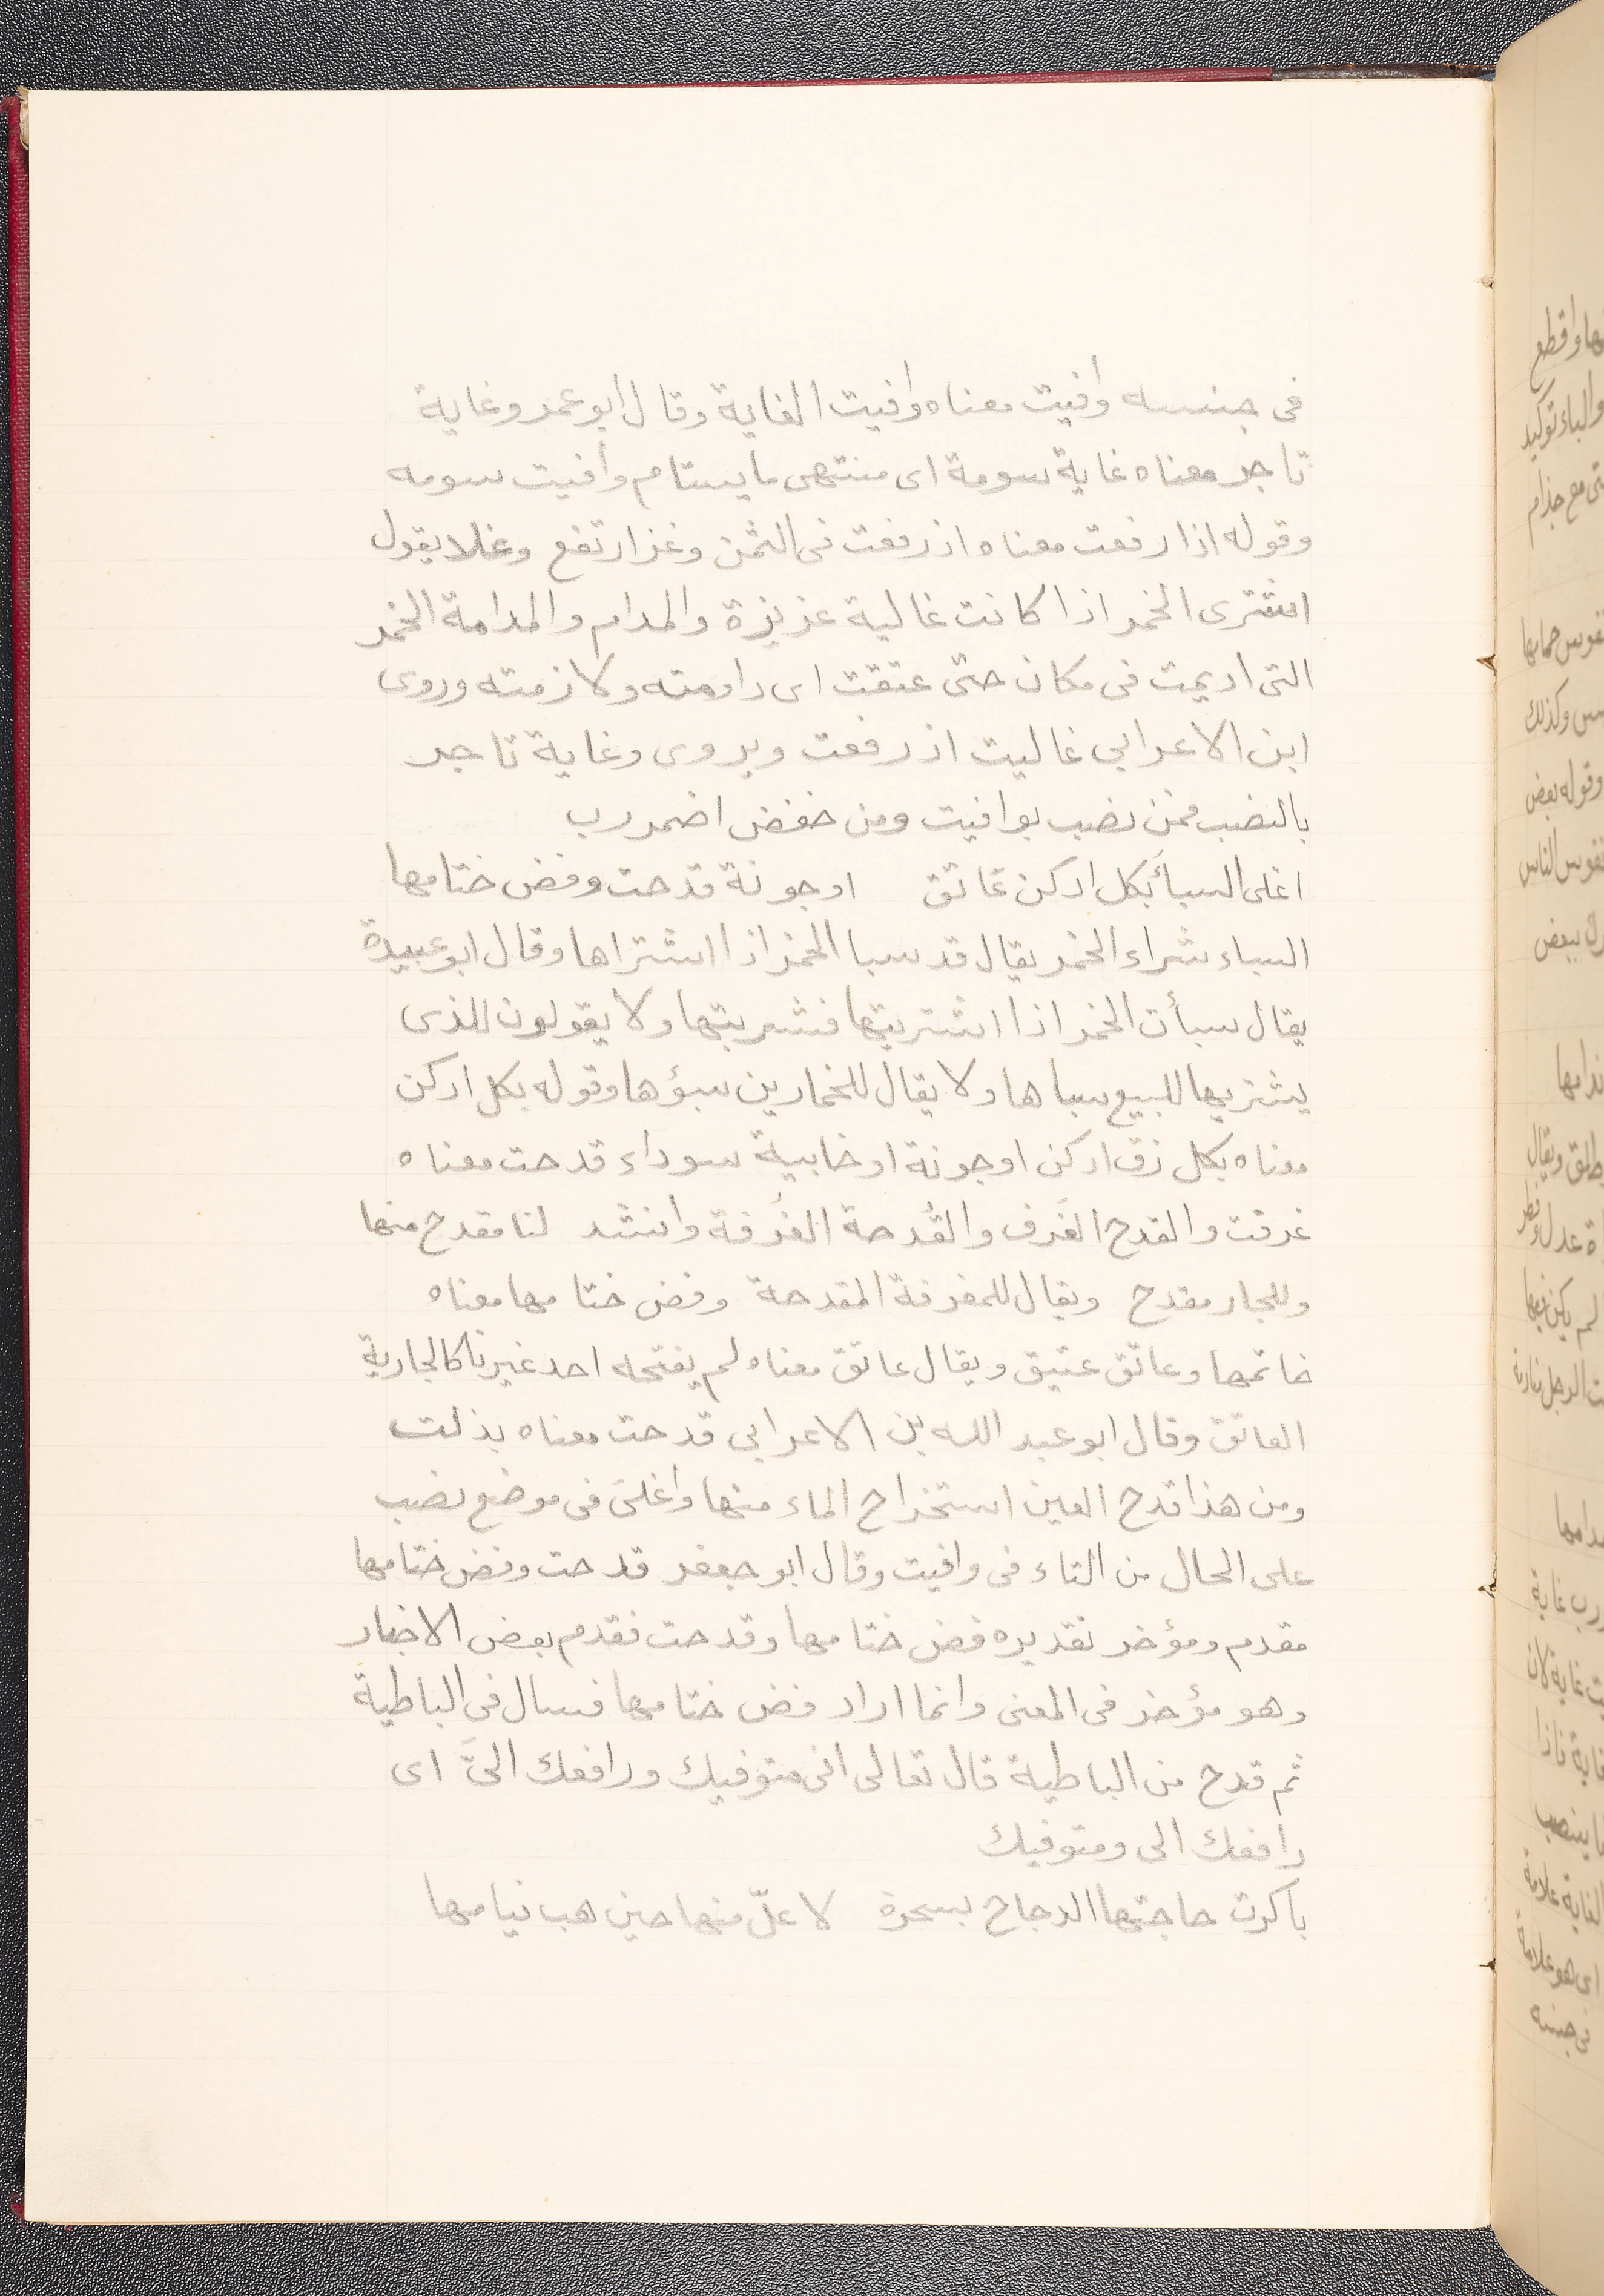 فى جنسه وافيت معناه وافيت الغاية وقال ابو عمرو غاية
تاجر معناه غاية سومة اى منتهى ما يستام وافيت سومه
وقوله اذا رفعت معناه اذ رفعت فى الثمن وعز ارتفع وغلا يقول
اشترى الخمر اذا كانت غالية عزيزة والمدام والمدامة الخمر
التى اديمت فى مكان حتى عتقت اى داومته ولازمته وروى
ابن الاعرابى غاليت اذ رفعت ويروى وغاية تاجر
بالنصب فمن نصب بوافيت ومن خفض اضمر رب
اغلى السبأ بكل ادكن عاتق اوجونة قدحت وفض ختامها
السباء شراء الخمر يقال قد سبا الخمر اذا اشتراها وقال ابو عبيدة
يقال سبأت الخمر اذا اشتريتها فشربتها ولا يقولون للذى
يشتريها للبيع سباها ولا يقال للخمارين سبؤها وقوله بكل ادكن
معناه بكل زق ادكن اوجونة اوخابية سوداء قدحت معناه
غرفت والقدح الغَرف والقُدحة الغُرفة وانشد لنا مقدح منها
وللجار مقدح ويقال للمغرفة المقدحة وفض ختامها معناه
خاتمها وعاتق عتيق ويقال عاتق معناه لم يفتحه احد غيرنا كالجارية
العاتق وقال ابو عبد الله بن الاعرابى قدحت معناه بذلت
ومن هذا قدح العين استخراج الماء منها واغلى فى موضع نصب
على الحال من التاء فى وافيت وقال ابو جعفر قدحت وفض ختامها
مقدم ومؤخر تقديره فض ختامها وقدحت فقدم بعض الاخبار
وهو مؤخر فى المعنى وانما اراد فض ختامها فسال فى الباطية
ثم قدح من الباطية قال تعالى انى متوفيك ورافعك الىَّ اى
رافعك الى ومتوفيك
باكرت حاجتها الدجاج بسحرة لاعلّ منها حين هب نيامها